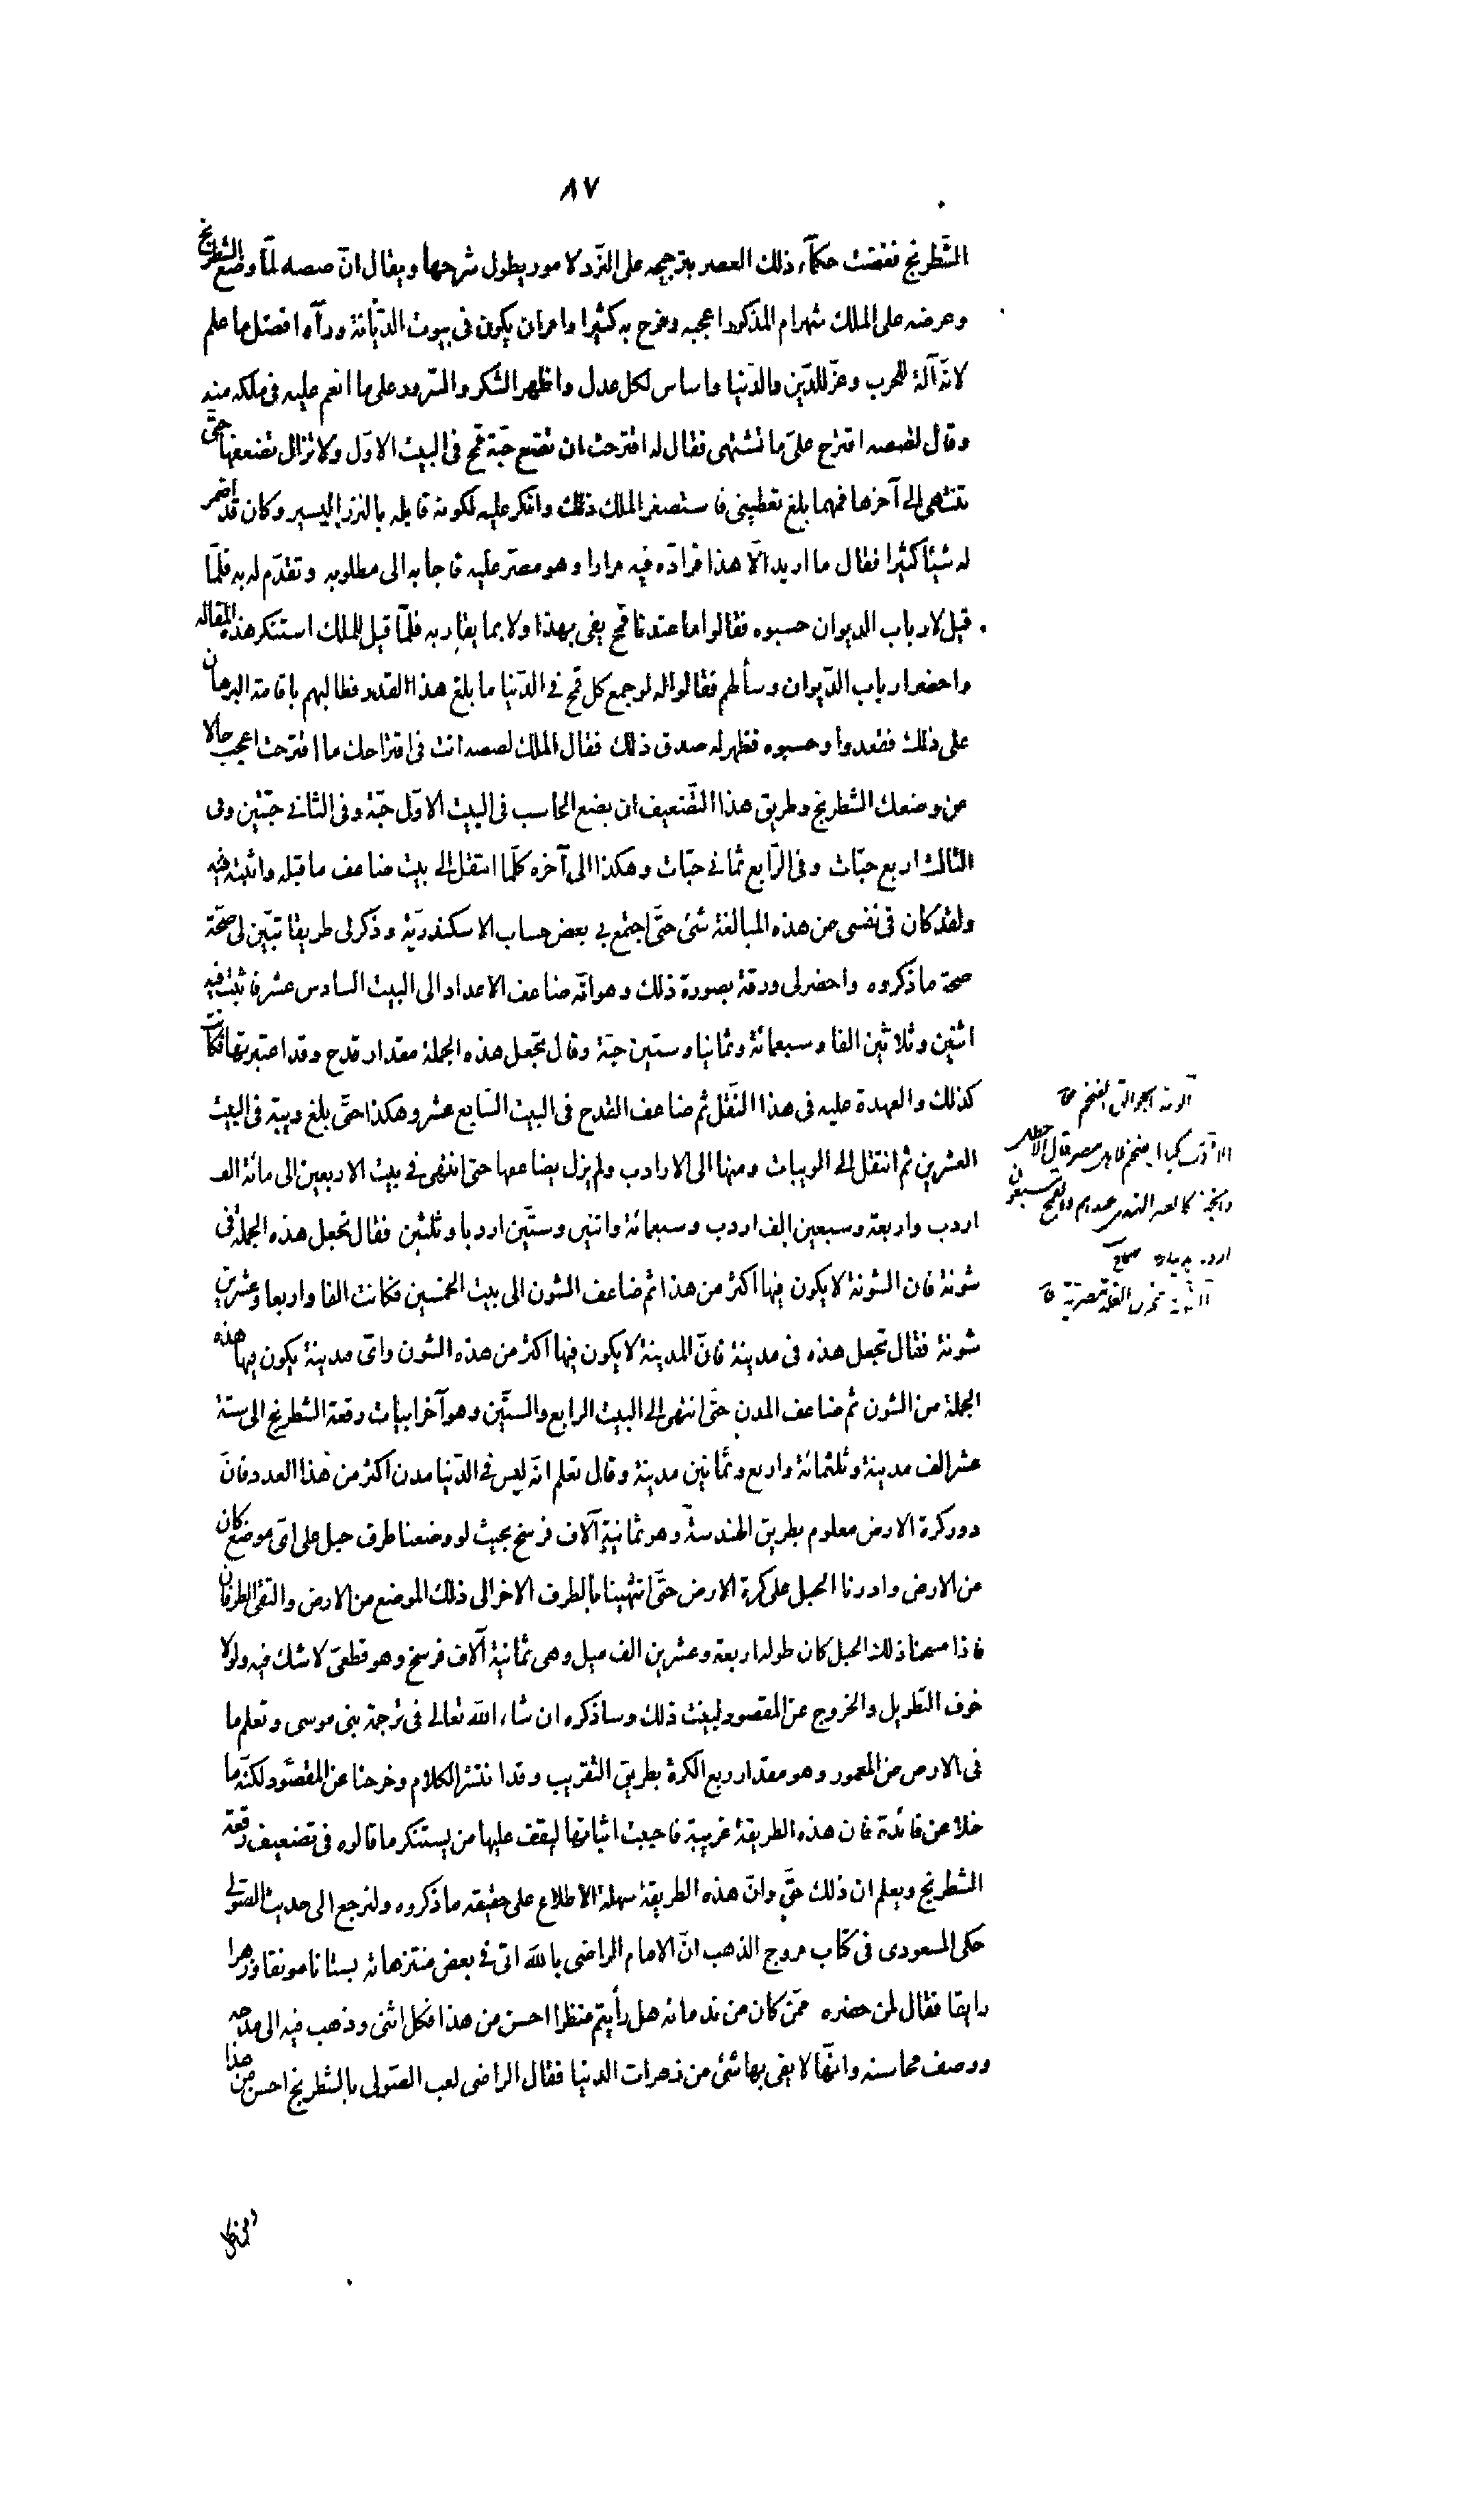 ٨٧
الشطرنج فقضت حكمآء ذلك العصر بترجيحه على النّرد لامور يطول شرحها ويقال انّ صصه لمّا وضع الشطرنج
وعرضه على الملك شهرام المذكور اعجبه وفرح به كثيرا وامر ان يكون فى بيوت الدّيانة ورآه افضل ما علم
لانّه آلة للحرب وعزّ للدّين والدّنيا واساس لكل عدل واظهر الشكر والسّرور على ما انعم عليه فى ملكه منه
وقال لصصه اقترح علىّ ما تشتهى فقال له اقترحت ان تضع حبّة قمح فى البيت الاوّل ولا تزال تضعفها حتّى
تنتهى الى آخرها فمهما بلغ تعطينى فاستصغر الملك ذلك وانكر عليه لكونه قابله بالنزر اليسير وكان قد اضمر
له شيئا كثيرا فقال ما اريد الّا هذا فرادّه فيه مرارا وهو مصرّ عليه فاجابه الى مطلوبه وتقدّم له به فلمّا
قيل لارباب الديوان حسبوه فقالوا ما عندنا قمح يفى بهذا ولا بما يقاربه فلمّا قيل للملك استنكر هذه المقاله
واحضر ارباب الدّيوان وسألهم فقالوا له لو جمع كل قمح فى الدّنيا ما بلغ هذا القدر فطالبهم باقامة البرهان
على ذلك فقعدوا وحسبوه فظهر له صدق ذلك فقال الملك لصصه انت فى اقتراحك ما اقترحت اعجب حالا
من وضعك الشطرنج وطريق هذا التّضعيف ان يضع الحاسب فى البيت الاوّل حبّة وفى الثانى حبّتين وفى
الثالث اربع حبّات وفى الرّابع ثمانى حبّات وهكذا الى آخره كلّما انتقل الى بيت ضاعف ما قبله واثبته فيه
ولقد كان فى نفسى من هذه المبالغة شئ حتّى اجتمع بى بعض حساب الاسكندريّة وذكر لى طريقا تبيّن لى صحّة
صحة ما ذكروه واحضر لى ورقة بصورة ذلك وهو انّه ضاعف الاعداد الى البيت السادس عشر فاثبت فيه
اثنين وثلاثين الفا وسبعمائة وثمانيا وستين حبّة وقال نجعل هذه الجملة مقدار قدح وقد اعتبرتها فكانت
كذلك والعهدة عليه فى هذا النّقل ثم ضاعف القدح فى البيت السّابع عشر وهكذا حتّى بلغ ويبة فى البيت
العشرين ثم انتقل الى الويبات ومنها الى الارادب ولم يزل يضاعفها حتى انتهى فى بيت الاربعين الى مائة الف
اردب واربعة وسبعين الف اردب وسبعمائة واثنين وستّين اردبا وثلثين فقال نجعل هذه الجملة فى
شونة فان الشونة لا يكون فيها اكثر من هذا ثم ضاعف الشون الى بيت الخمسين فكانت الفا واربعا وعشرين
شونة فقال نجعل هذه فى مدينة فانّ المدينة لا يكون فيها اكثر من هذه الشون واىّ مدينة يكون فيها هذه
الجملة من الشون ثم ضاعف المدن حتّى انتهى الى البيت الرابع والستّين وهو آخر ابيات رقعة الشطرنج الى ستة
عشر الف مدينة وثلثمائة واربع وثمانين مدينة وقال تعلم انّه ليس فى الدّنيا مدن اكثر من هذا العدد فانّ
دور كرة الارض معلوم بطريق الهندسة وهو ثمانية آلاف فرسخ بحيث لو وضعنا طرف حبل على اىّ موضع كان
من الارض وادرنا الحبل على كرة الارض حتّى انتهينا بالطرف الاخر الى ذلك الموضع من الارض والتقى الطرفان
فاذا مسحنا ذلك الحبل كان طوله اربعة وعشرين الف ميل وهى ثمانية آلاف فرسخ وهو قطعىّ لا شك فيه ولولا
خوف التّطويل والخروج عن المقصود لبينت ذلك وساذكره ان شاء الله تعالى فى ترجمة بنى موسى وتعلم ما
فى الارض من المعمور وهو مقدار ربع الكرة بطريق التقريب وقد انتشر الكلام وخرجنا عن المقصود لكنّه ما
خلا عن فائدة فان هذه الطريقة غريبة فاحببت اثباتها ليقف عليها من يستنكر ما قالوه فى تضعيف رقعة
الشطرنج ويعلم ان ذلك حقّ وانّ هذه الطريقة سهلة الاطلاع على حقيقه ما ذكروه ولنرجع الى حديث الصّولى
حكى المسعودى فى كتاب مروج الذهب انّ الامام الراضى بالله اتى فى بعض منتزهاته بستانا مونقا وزهرا
رايقا فقال لمن حضره ممّن كان من ندمائه هل رأيتم منظرا احسن من هذا فكل اثنى وذهب فيه الى مدحه
ووصف محاسنه وانّها لا يفى بها شئ من زهرات الدنيا فقال الراضى لعب الصّولى بالشطرنج احسن من هذا